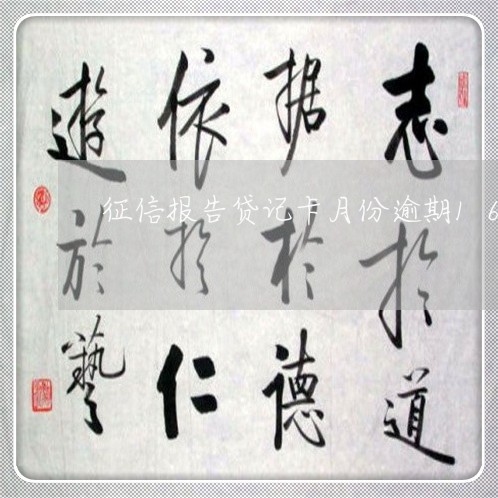 志於道
据於德
依於仁
遊於藝
征信报告贷记卡月份逾期1 6